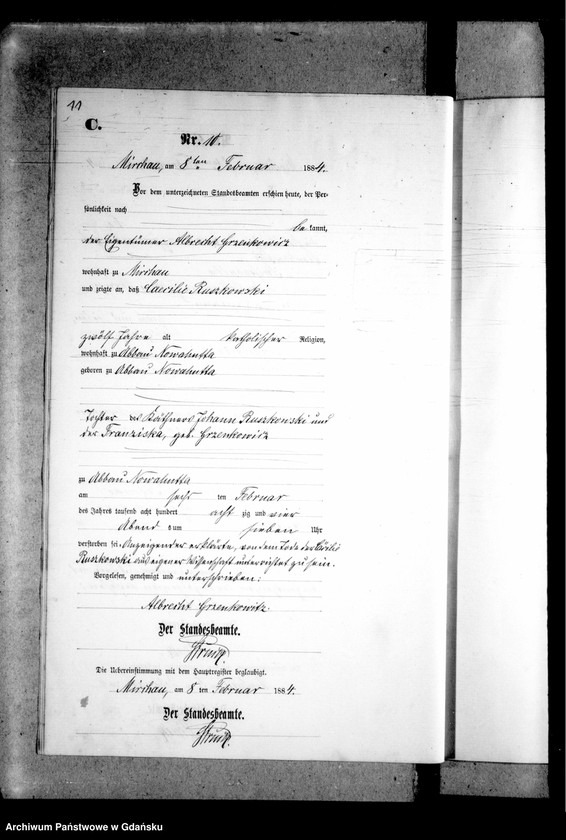 11
C.
Nr. 10.
Mirchau, am 8ten Februar 1884.
Vor dem unterzeichneten Standesbeamten erschien heute, der Per-
sönlichkeit nach
bekannt,
der Eigentümer Albrecht Grzenkowitz
wohnhaft zu Mirchau
und zeigte an, daß Caecilie Ruszkowski
zwölf Jahre alt katholischer Religion,
wohnhaft zu Abbau Nowahutta
geboren zu Abbau Nowahutta
Tochter des Käthners Johann Ruszkowski und
der Franziska, geb. Grzenkowitz
zu Abbau Nowahutta
am sechs ten Februar
des Jahres tausend acht hundert acht zig und vier
Abends um sieben Uhr
verstorben sei. Anzeigender erklärte, von dem Tode der Cäcilie
Ruszkowski aus eigener Wissenschaft unterrichtet zu sein.
Vorgelesen, genehmigt und unterschrieben:
Albrecht Grzenkowitz.
Der Standesbeamte.
Die Uebereinstimmung mit dem Hauptregister beglaubigt.
Mirchau, am 8 ten Februar 1884.
Der Standesbeamte.
Archiwum Państwowe w Gdańsku